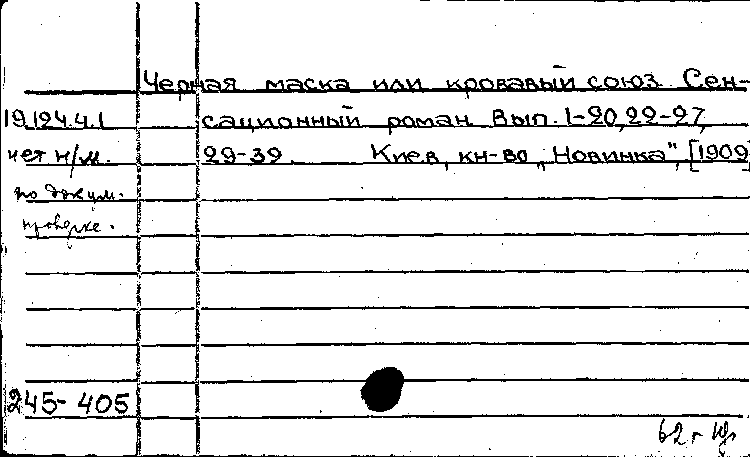 Черная маска или кровавый союз. Сен-
19.124.4.1 сационный роман. Вып. 1-20, 22-27,
нет н/м. 29-39. Киев, кн-во „Новинка", [1909]
по докум.
проверке.
245-405
62 г